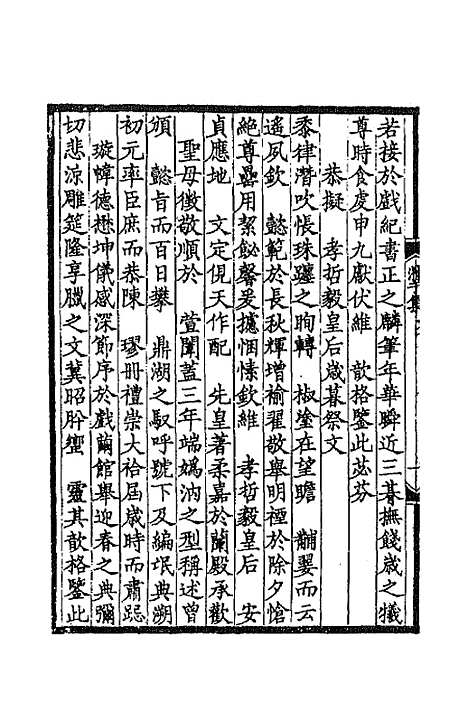 若接於戲紀書正之麟筆年華瞬近三暮撫餞歲之犧
尊時食虔申九獻伏維　歆格鑒此苾芬
恭擬　孝哲毅皇后歲暮祭文
黍律潛吹悵珠躔之晌轉　椒塗在望瞻　黼翣而云
遙夙欽　懿範於長秋輝增褕翟敬舉明禋於除夕愴
絕尊罍用絜飶馨爰攄悃愫欽維　孝哲毅皇后　安
貞應地　文定俔天作配　先皇著柔嘉於蘭殿承歡
聖母徵敬順於　萱闈蓋三年端媯汭之型稱述曾
頒　懿旨而百日攀　鼎湖之馭呼號下及編氓典溯
初元率臣庶而恭陳　璆冊禮崇大祫屆歲時而肅跽
璇幃德懋坤儀感深節序於戲繭館舉迎春之典彌
切悲涼雕筵隆享臘之文冀昭肸蠁　靈其歆格鑒此